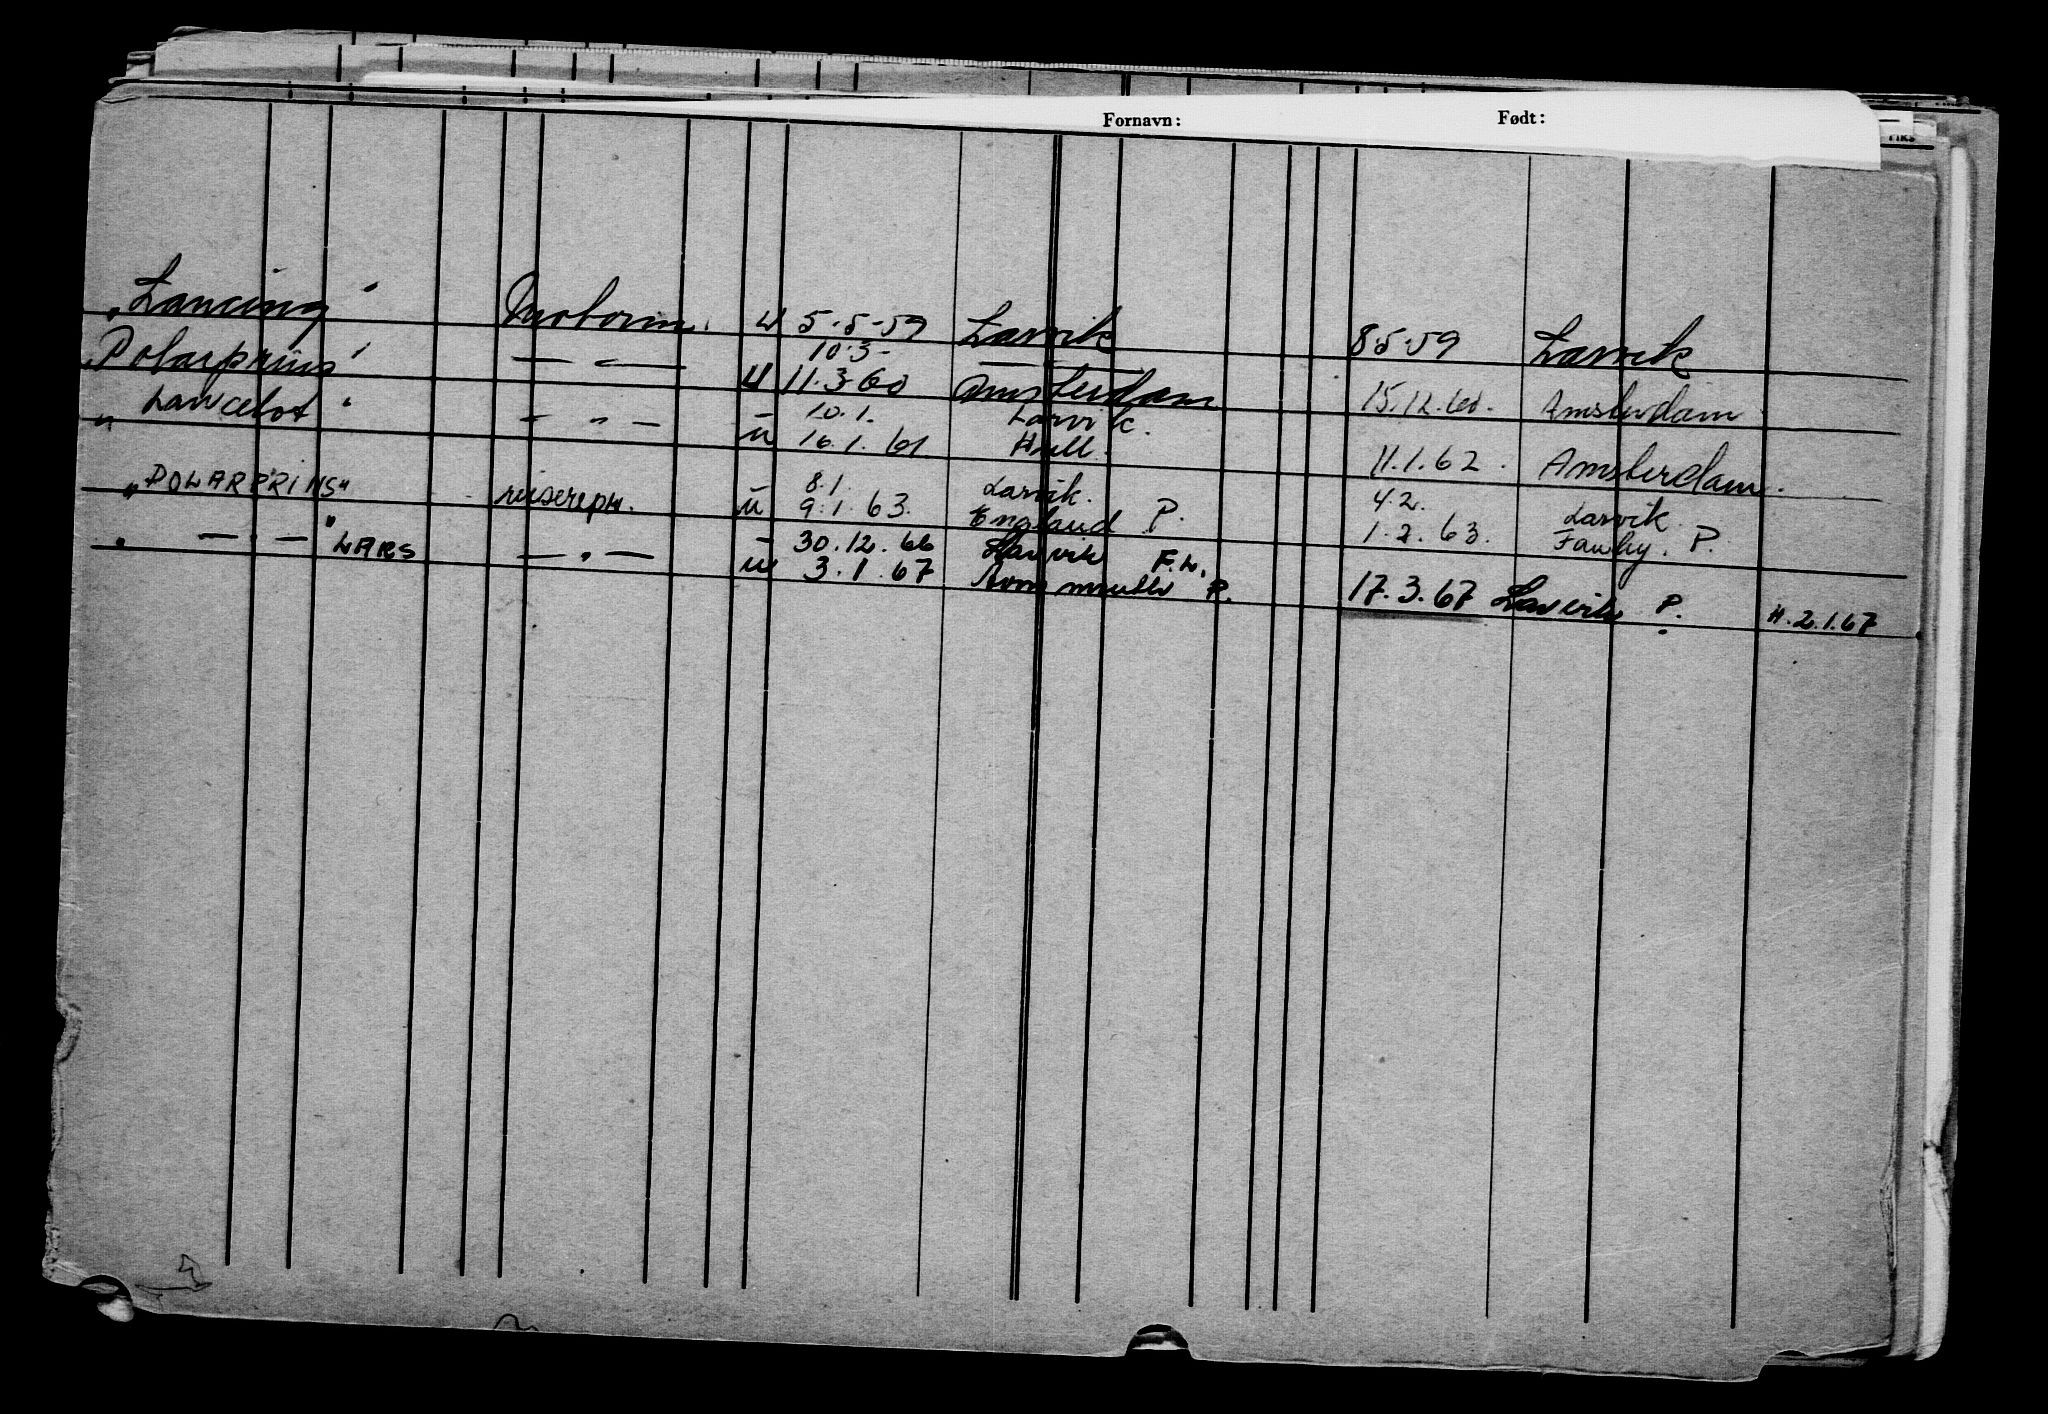 Fornavn: Født:
"Lancing" Motorm. u 5-5-59 Larvik 8.5-59 Larvik
10.3-
Polarprins" — " — u 11.3-60 Amsterdam 15.12.60. Amsterdam
— 10.1. Larvik.
"Lancelot" — " — u 16.1.61. Hull. 11.1.62. Amsterdam.
— 8.1. Larvik. 4.2. Larvik
"POLARPRINS" reiserepr. u 9.1.63. England P. 1.2.63. Fawley. P.
— 30.12.66 Larvik F.L.
" — " — " LARS — " — u 3.1.67 P. 17.3.67 Larvik P. H.2.1.67